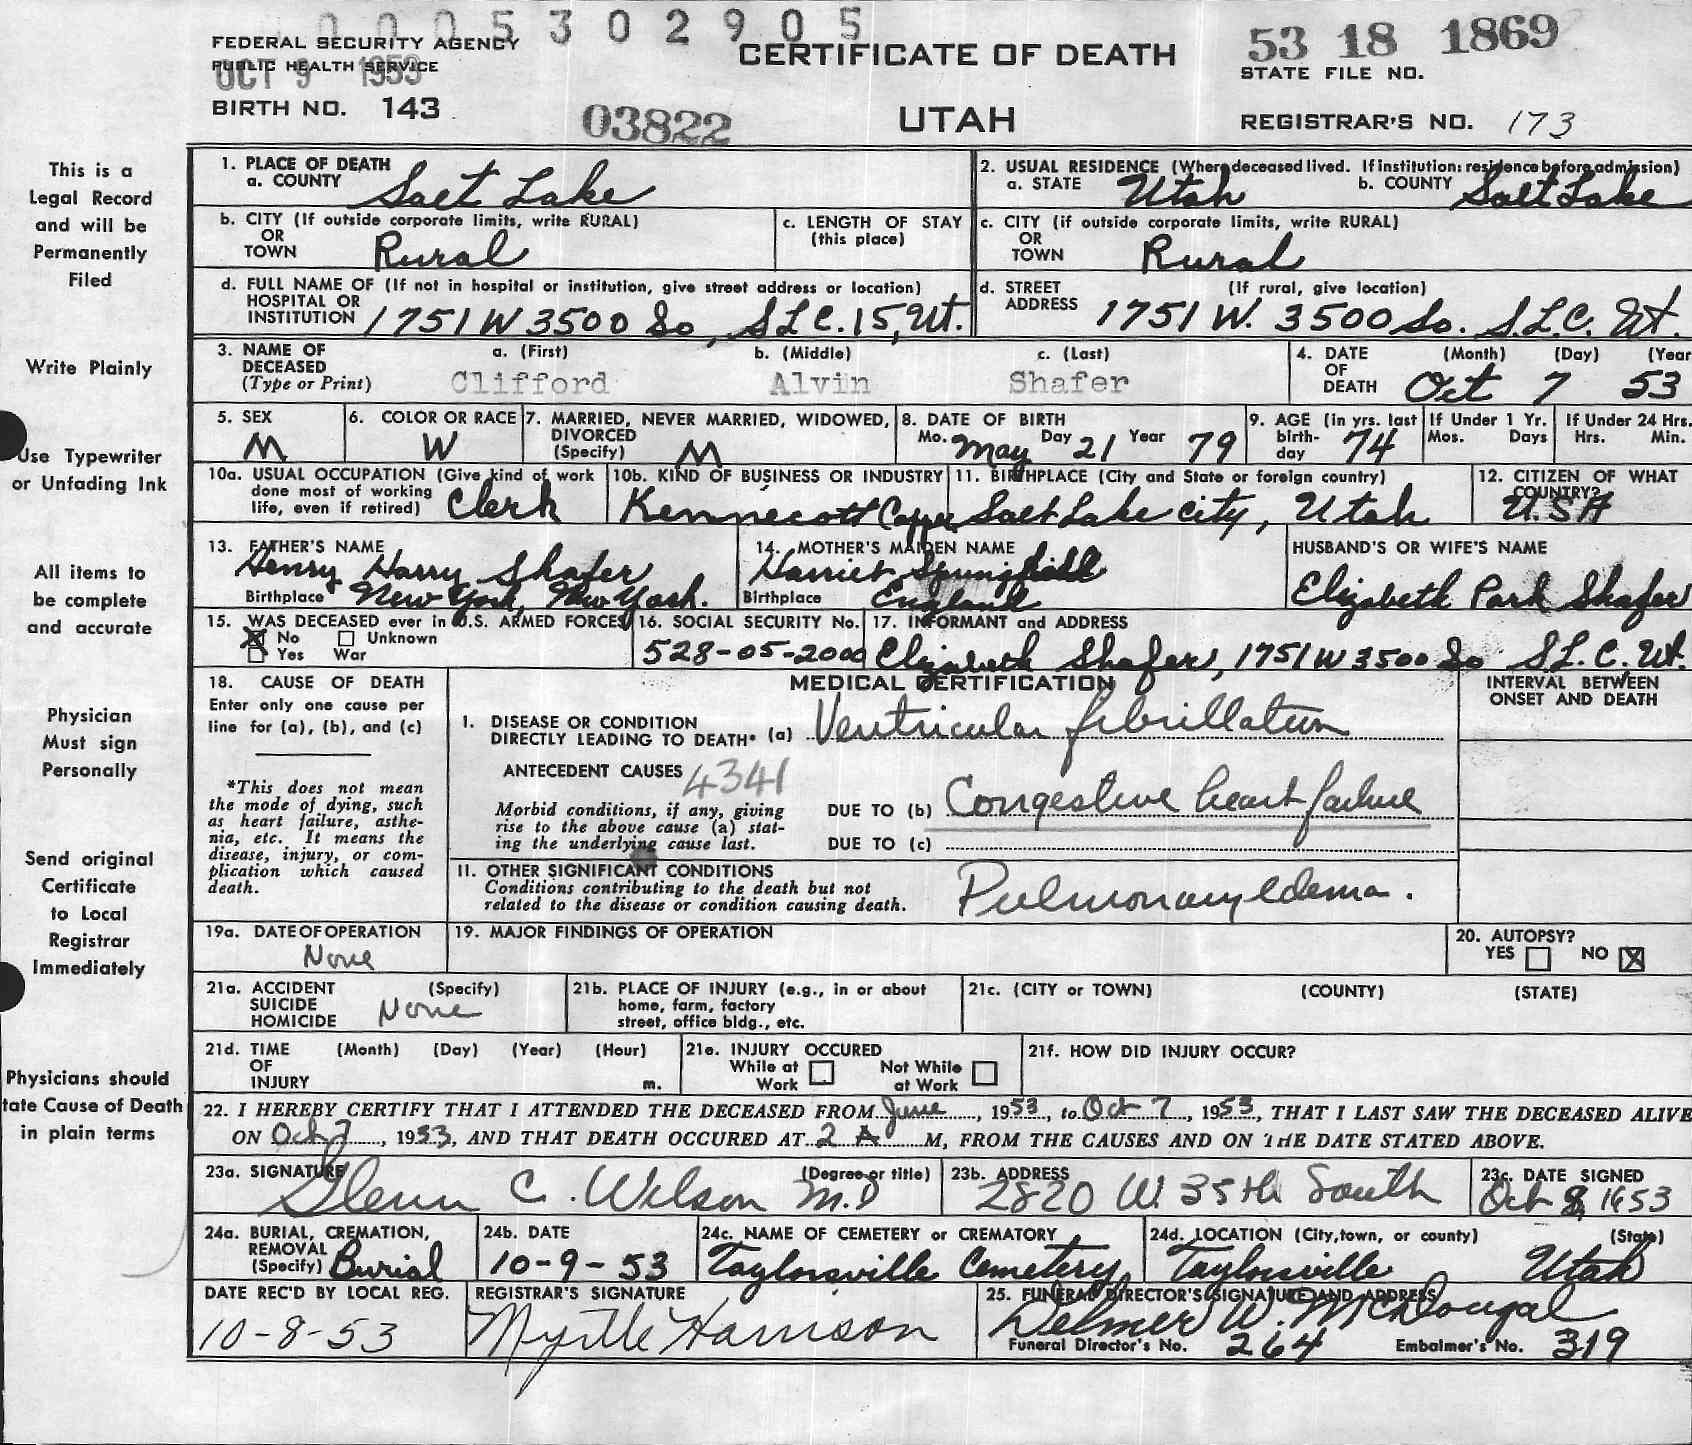 0005302905
FEDERAL SECURITY AGENCY
PUBLIC HEALTH SERVICE
OCT 9 1953
BIRTH NO. 143
03822
CERTIFICATE OF DEATH
UTAH
53 18 1869
STATE FILE NO.
REGISTRAR'S NO. 173
This is a
Legal Record
and will be
Permanently
Filed
Write Plainly
Use Typewriter
or Unfading Ink
All items to
be complete
and accurate
Physician
Must sign
Personally
Send original
Certificate
to Local
Registrar
Immediately
Physicians should
tate Cause of Death
in plain terms
1. PLACE OF DEATH
a. COUNTY Salt Lake
2. USUAL RESIDENCE (Where deceased lived. If institution: residence before admission)
a. STATE Utah b. COUNTY Salt Lake
b. CITY (If outside corporate limits, write RURAL)
OR
TOWN Rural
c. LENGTH OF STAY
(this place)
c. CITY (if outside corporate limits, write RURAL)
OR
TOWN Rural
d. FULL NAME OF (If not in hospital or institution, give street address or location)
HOSPITAL OR
INSTITUTION 1751 W 3500 So, S.L.C. 15, Ut.
d. STREET (If rural, give location)
ADDRESS 1751 W. 3500 So. S.L.C. Ut.
3. NAME OF a. (First) b. (Middle) c. (Last)
DECEASED
(Type or Print) Clifford Alvin Shafer
4. DATE (Month) (Day) (Year
OF
DEATH Oct 7 53
5. SEX
M
6. COLOR OR RACE
W
7. MARRIED, NEVER MARRIED, WIDOWED,
DIVORCED
(Specify) M
8. DATE OF BIRTH
Mo. May Day 21 Year 79
9. AGE (in yrs. last
birth-
day 74
If Under 1 Yr.
Mos. Days
If Under 24 Hrs.
Hrs. Min.
10a. USUAL OCCUPATION (Give kind of work
done most of working
life, even if retired) Clerk
10b. KIND OF BUSINESS OR INDUSTRY
Kennecott Copper
11. BIRTHPLACE (City and State or foreign country)
Salt Lake City, Utah
12. CITIZEN OF WHAT
COUNTRY?
U.S.A
13. FATHER'S NAME
Henry Harry Shafer
Birthplace New York, New York.
14. MOTHER'S MAIDEN NAME
Harriet Springfield
Birthplace England
HUSBAND'S OR WIFE'S NAME
Elizabeth Park Shafer
15. WAS DECEASED ever in U.S. ARMED FORCES
No Unknown
Yes War
16. SOCIAL SECURITY No.
528-05-2000
17. INFORMANT and ADDRESS
Elizabeth Shafer, 1751 W 3500 So S.L.C. Ut.
18. CAUSE OF DEATH
Enter only one cause per
line for (a), (b), and (c)
*This does not mean
the mode of dying, such
as heart failure, asthe-
nia, etc. It means the
disease, injury, or com-
plication which caused
death.
MEDICAL CERTIFICATION
INTERVAL BETWEEN
ONSET AND DEATH
I. DISEASE OR CONDITION
DIRECTLY LEADING TO DEATH* (a) Ventricular fibrillation
ANTECEDENT CAUSES 4341
Morbid conditions, if any, giving
rise to the above cause (a) stat-
ing the underlying cause last.
DUE TO (b) Congestive heart failure
DUE TO (c)
II. OTHER SIGNIFICANT CONDITIONS
Conditions contributing to the death but not
related to the disease or condition causing death.
Pulmonary edema.
19a. DATE OF OPERATION
None
19. MAJOR FINDINGS OF OPERATION
20. AUTOPSY?
YES NO
21a. ACCIDENT (Specify)
SUICIDE
HOMICIDE None
21b. PLACE OF INJURY (e.g., in or about
home, farm, factory
street, office bldg., etc.
21c. (CITY or TOWN) (COUNTY) (STATE)
21d. TIME (Month) (Day) (Year) (Hour)
OF
INJURY m.
21e. INJURY OCCURED
While at Not While
Work at Work
21f. HOW DID INJURY OCCUR?
22. I HEREBY CERTIFY THAT I ATTENDED THE DECEASED FROM June, 1953, to Oct 7, 1953, THAT I LAST SAW THE DECEASED ALIVE
ON Oct 7, 1953, AND THAT DEATH OCCURED AT 2 A M, FROM THE CAUSES AND ON THE DATE STATED ABOVE.
23a. SIGNATURE (Degree or title)
Glenn C. Wilson M.D
23b. ADDRESS
2820 W. 35th South
23c. DATE SIGNED
Oct 8, 1953
24a. BURIAL, CREMATION,
REMOVAL
(Specify) Burial
24b. DATE
10-9-53
24c. NAME OF CEMETERY or CREMATORY
Taylorsville Cemetery
24d. LOCATION (City, town, or county) (State)
Taylorsville Utah
DATE REC'D BY LOCAL REG.
10-8-53
REGISTRAR'S SIGNATURE
Myrtle Harrison
25. FUNERAL DIRECTOR'S SIGNATURE AND ADDRESS
Delmer W. McDougal
Funeral Director's No. 264 Embalmer's No. 319